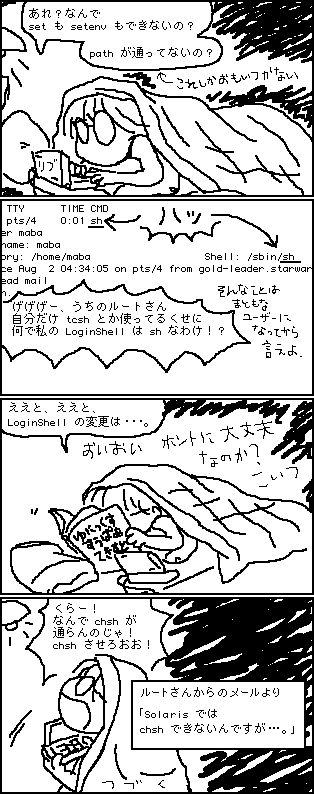 あれ？なんで
set も setenv もできないの？
path が通ってないの？
これしかおもいつかない
リブ
TTY TIME CMD
pts/4 0:01 sh
ハッ
er maba
name: maba
ory: /home/maba Shell: /sbin/sh
ce Aug 2 04:34:05 on pts/4 from gold-leader.starwar
ead mail
n.
げげげー、うちのルートさん
自分だけ tcsh とか使ってるくせに
何で私の LoginShell は sh なわけ！？
そんなことは
まともな
ユーザーに
なってから
言えよ.
ええと、ええと、
LoginShell の変更は・・・。
おいおい
ホントに大丈夫
なのか？
こいつ
ゆにっくす
すうぱあ
てきすと
くらー！
なんで chsh が
通らんのじゃ！
chsh させろおお！
ルートさんからのメールより
「Solaris では
chsh できないんですが…。」
つづく